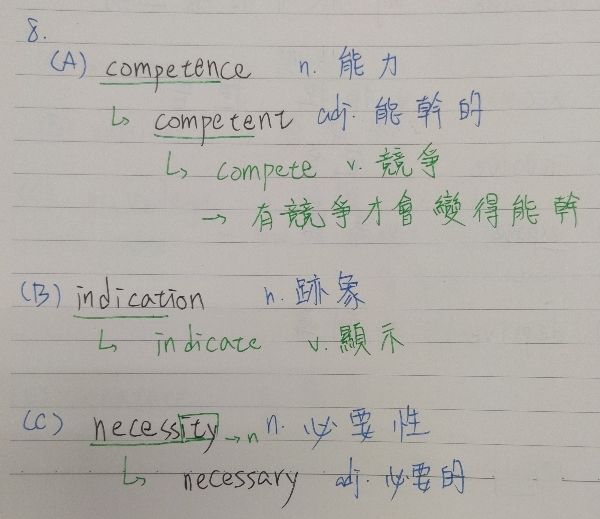 8.
(A) competence n. 能力
↳ competent adj. 能幹的
↳ compete v. 競爭
→ 有競爭才會變得能幹
(B) indication n. 跡象
↳ indicate v. 顯示
(C) necessity → n n. 必要性
↳ necessary adj. 必要的